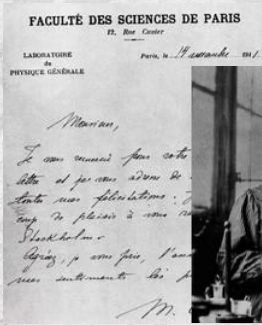 FACULTÉ DES SCIENCES DE PARIS
12, Rue Cuvier
LABORATOIRE
de
PHYSIQUE GÉNÉRALE
Paris, le 14 novembre 1911.
Monsieur,
Je vous remercie pour votre
lettre et je vous adresse de
toutes mes félicitations.
coup de plaisir à vous
Stockholm.
Agréez, je vous prie,
mes sentiments les
M.